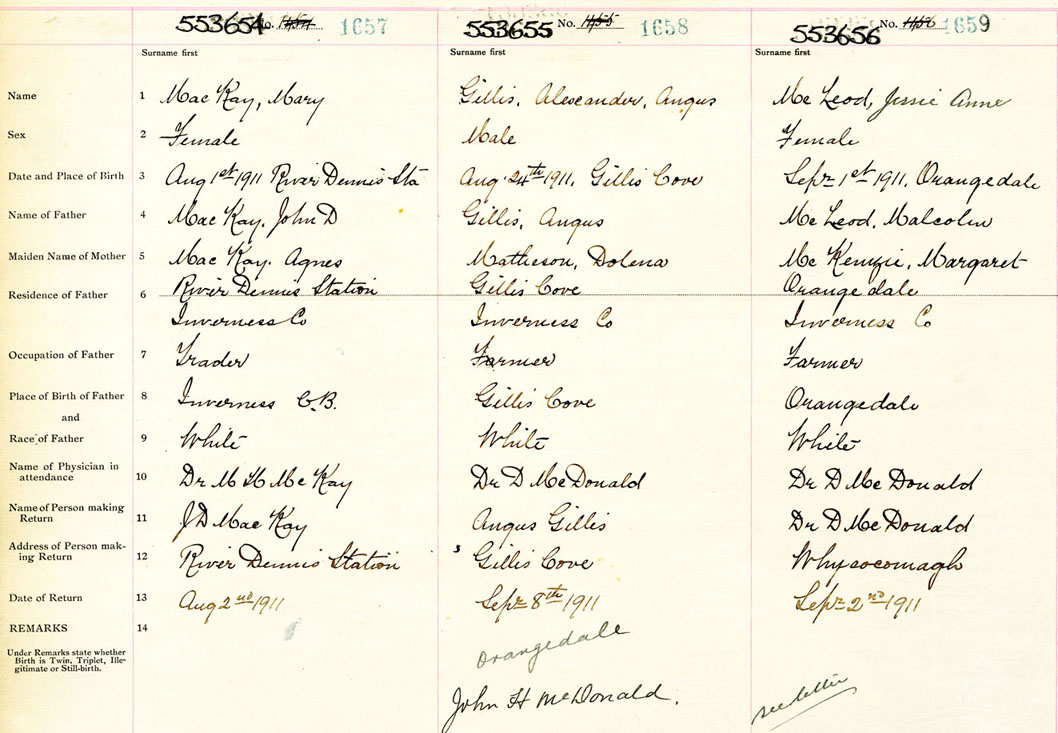 553654 No. 1454 1657 553655 No. 1455 1658 553656 No. 1456 1659
Surname first Surname first Surname first
Name 1 MacKay, Mary Gillis, Alexander, Angus McLeod, Jessie Anne
Sex 2 Female Male Female
Date and Place of Birth 3 Aug 1st 1911 River Dennis Sta Aug. 24th 1911, Gillis Cove Sepr 1st 1911, Orangedale
Name of Father 4 MacKay, John D Gillis, Angus McLeod, Malcolm
Maiden Name of Mother 5 MacKay. Agnes Matheson, Dolena McKenzie, Margaret
Residence of Father 6 River Dennis Station Gillis Cove Orangedale
Inverness Co Inverness Co Inverness Co
Occupation of Father 7 Trader Farmer Farmer
Place of Birth of Father 8 Inverness C.B. Gillis Cove Orangedale
and
Race of Father 9 White White White
Name of Physician in
attendance 10 Dr M H McKay Dr D McDonald Dr D McDonald
Name of Person making
Return 11 J D MacKay Angus Gillis Dr D McDonald
Address of Person mak-
ing Return 12 River Dennis Station Gillis Cove Whycocomagh
Date of Return 13 Aug 2nd 1911 Sepr 8th 1911 Sepr 2nd 1911
REMARKS 14
Under Remarks state whether
Birth is Twin, Triplet, Ille-
gitimate or Still-birth.
Orangedale
John H McDonald.
see letter